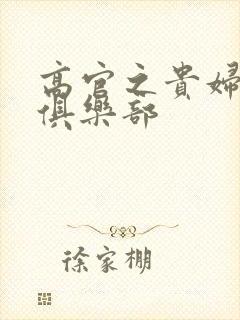 高官之貴婦
俱樂部
徐家棚